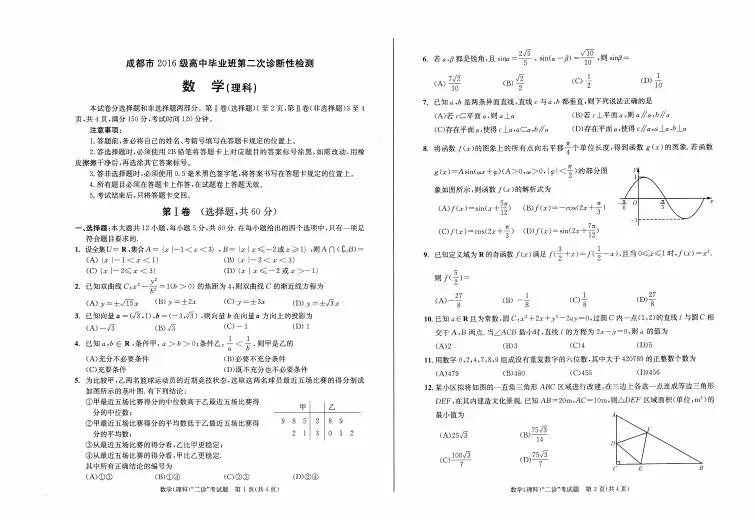 成都市 2016 级高中毕业班第二次诊断性检测
数 学(理科)
本试卷分选择题和非选择题两部分。第Ⅰ卷(选择题)1 至 2 页,第Ⅱ卷(非选择题)3 至 4
页,共 4 页,满分 150 分,考试时间 120 分钟。
注意事项:
1. 答题前,务必将自己的姓名、考籍号填写在答题卡规定的位置上。
2. 答选择题时,必须使用 2B 铅笔将答题卡上对应题目的答案标号涂黑,如需改动,用橡
皮擦擦干净后,再选涂其它答案标号。
3. 答非选择题时,必须使用 0.5 毫米黑色签字笔,将答案书写在答题卡规定的位置上。
4. 所有题目必须在答题卡上作答,在试题卷上答题无效。
5. 考试结束后,只将答题卡交回。
第Ⅰ卷 (选择题,共 60 分)
一、选择题:本大题共 12 小题,每小题 5 分,共 60 分.在每小题给出的四个选项中,只有一项是
符合题目要求的.
1. 设全集U=R,集合A={x|-1<x<3},B={x|x≤-2或x≥1},则A∩(∁UB)=
(A){x|-1<x<1} (B){x|-2<x<3}
(C){x|-2≤x<3} (D){x|x≤-2或x>-1}
2. 已知双曲线C:x²-y²/b²=1(b>0)的焦距为4,则双曲线C的渐近线方程为
(A)y=±√15x (B)y=±2x (C)y=±3x (D)y=±√3x
3. 已知向量a=(√3,1),b=(-3,√3),则向量b在向量a方向上的投影为
(A)-√3 (B)√3 (C)-1 (D)1
4. 已知a,b∈R,条件甲:a>b>0;条件乙:1/a<1/b.则甲是乙的
(A)充分不必要条件 (B)必要不充分条件
(C)充要条件 (D)既不充分也不必要条件
5. 为比较甲,乙两名篮球运动员的近期竞技状态,选取这两名球员最近五场比赛的得分制成
如图所示的茎叶图.有下列结论:
①甲最近五场比赛得分的中位数高于乙最近五场比赛得
分的中位数;
②甲最近五场比赛得分的平均数低于乙最近五场比赛得
分的平均数;
③从最近五场比赛的得分看,乙比甲更稳定;
④从最近五场比赛的得分看,甲比乙更稳定.
甲 乙
9 8 5 2 8 9
2 1 3 0 1 2
其中所有正确结论的编号为
(A)①③ (B)①④ (C)②③ (D)②④
数学(理科)“二诊”考试题 第 1 页(共 4 页)
6. 若α,β都是锐角,且sinα=2√5/5,sin(α-β)=√10/10,则sinβ=
(A)7√2/10 (B)√2/2 (C)1/2 (D)1/10
7. 已知a,b是两条异面直线,直线c与a,b都垂直,则下列说法正确的是
(A)若c⊂平面α,则a⊥α (B)若c⊥平面α,则a∥α,b∥α
(C)存在平面α,使得c⊥α,a⊂α,b∥α (D)存在平面α,使得c∥α,a⊥α,b⊥α
8. 将函数f(x)的图象上的所有点向右平移π/4个单位长度,得到函数g(x)的图象.若函数
g(x)=Asin(ωx+φ)(A>0,ω>0,|φ|<π/2)的部分图
象如图所示,则函数f(x)的解析式为
(A)f(x)=sin(x+5π/12) (B)f(x)=-cos(2x+π/3)
(C)f(x)=cos(2x+π/3) (D)f(x)=sin(2x+7π/12)
y
1
-π/6 O π/3 x
-1
9. 已知定义域为R的奇函数f(x)满足f(3/2+x)=f(1/2-x),且当0≤x≤1时,f(x)=x³.
则f(5/2)=
(A)-27/8 (B)-1/8 (C)1/8 (D)27/8
10. 已知a∈R且为常数,圆C:x²+2x+y²-2ay=0,过圆C内一点(1,2)的直线l与圆C相
交于A,B两点.当∠ACB最小时,直线l的方程为2x-y=0,则a的值为
(A)2 (B)3 (C)4 (D)5
11. 用数字0,2,4,7,8,9组成没有重复数字的六位数,其中大于420789的正整数个数为
(A)479 (B)480 (C)455 (D)456
12. 某小区拟将如图的一直角三角形ABC区域进行改建:在三边上各选一点连成等边三角形
DEF,在其内建造文化景观.已知AB=20m,AC=10m,则△DEF区域面积(单位:m²)的
最小值为
(A)25√3 (B)75√3/14
(C)100√3/7 (D)75√3/7
A
F
D
C E B
数学(理科)“二诊”考试题 第 2 页(共 4 页)